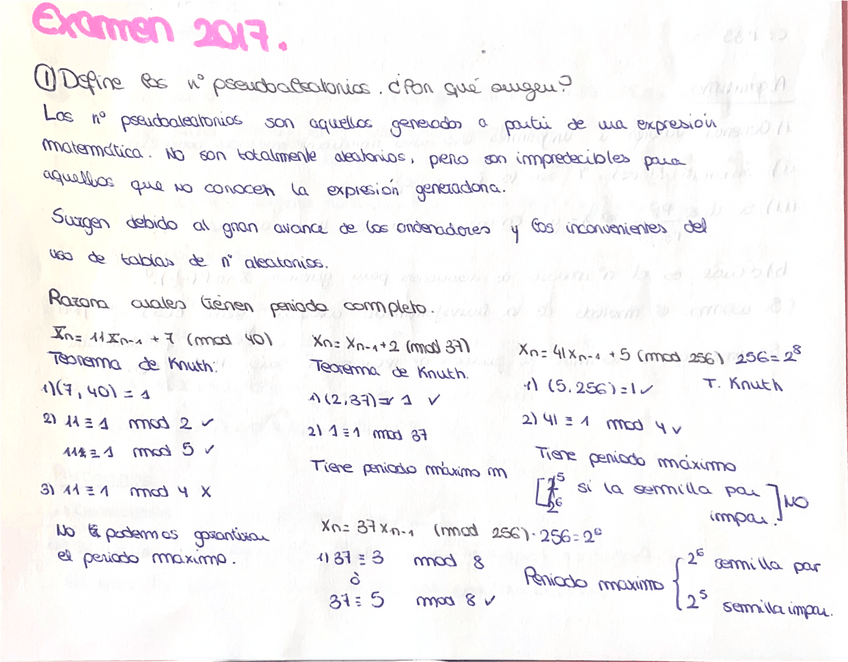 Examen 2017.
① Define los nº pseudoaleatorios. ¿Por qué surgen?
Los nº pseudoaleatorios son aquellos generados a partir de una expresión
matemática. No son totalmente aleatorios, pero son impredecibles para
aquellos que no conocen la expresión generadora.
Surgen debido al gran avance de los ordenadores y los inconvenientes del
uso de tablas de nº aleatorios.
Razona cuales tienen periodo completo.
Xn = 11Xn-1 + 7 (mod 40)
Teorema de Knuth:
1) (7, 40) = 1
2) 11 ≡ 1 mod 2 ✓
11 ≡ 1 mod 5 ✓
3) 11 ≡ 1 mod 4 X
No podemos garantizar
el periodo máximo.
Xn = Xn-1 + 2 (mod 37)
Teorema de Knuth.
1) (2, 37) = 1 ✓
2) 1 ≡ 1 mod 37
Tiene periodo máximo m
Xn = 41Xn-1 + 5 (mod 256) 256 = 2^8
1) (5, 256) = 1 ✓ T. Knuth
2) 41 ≡ 1 mod 4 ✓
Tiene periodo máximo
[2^5 si la semilla par
2^6 impar.] NO
Xn = 37Xn-1 (mod 256) · 256 = 2^8
1) 37 ≡ 3 mod 8
ò
37 ≡ 5 mod 8 ✓
Periodo maximo { 2^6 semilla par
2^5 semilla impar.